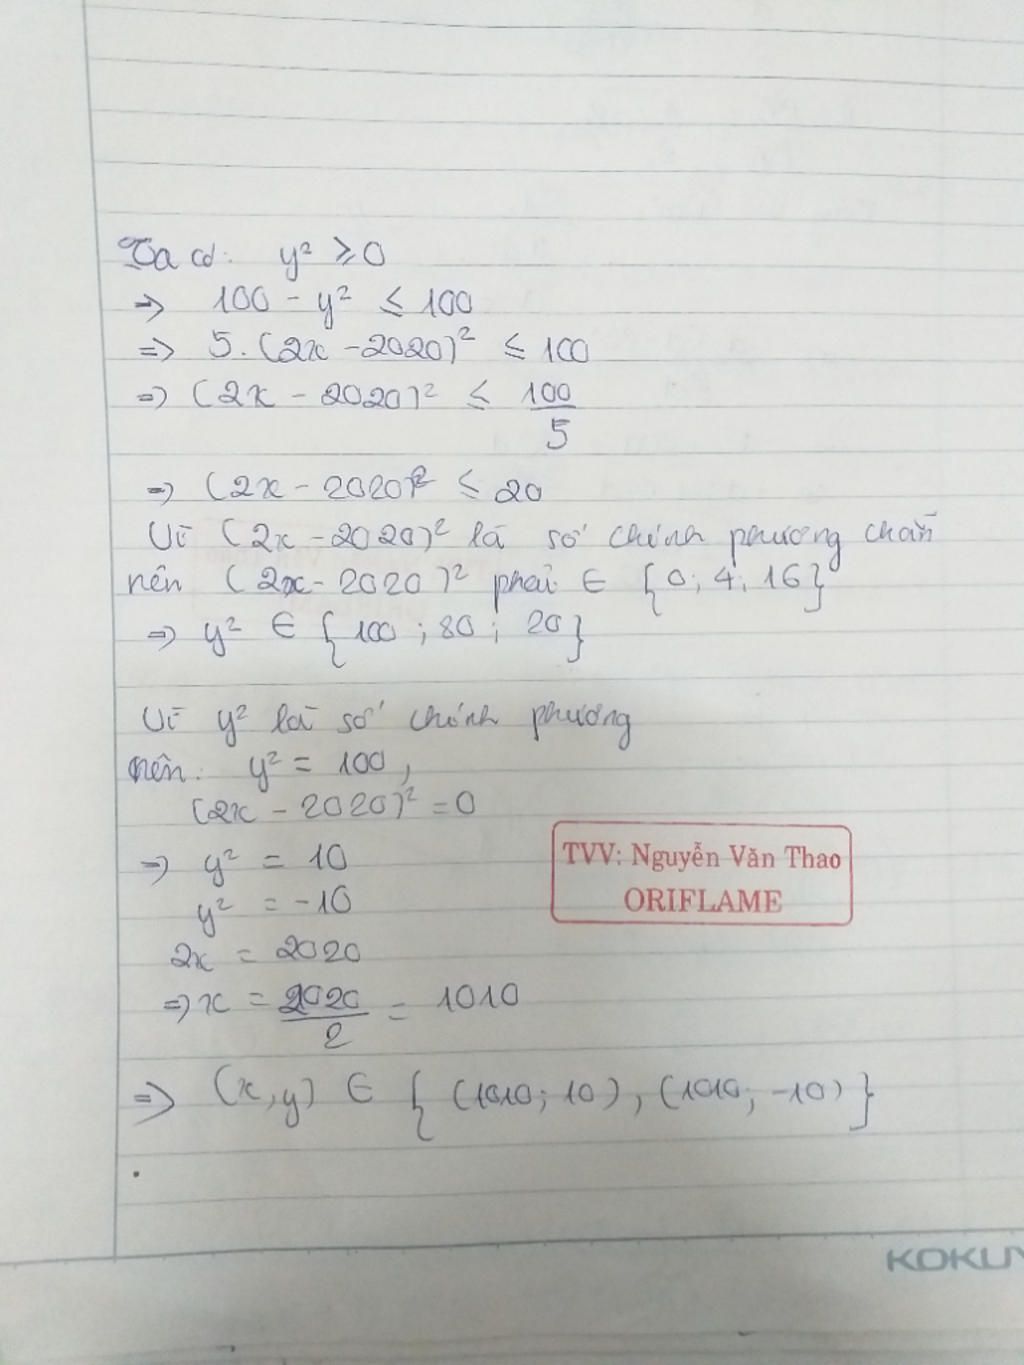 Ta có: y² ≥ 0
⇒ 100 - y² ≤ 100
⇒ 5.(2x - 2020)² ≤ 100
⇒ (2x - 2020)² ≤ 100/5
⇒ (2x - 2020)² ≤ 20
Vì (2x - 2020)² là số chính phương chẵn
nên (2x - 2020)² phải ∈ {0; 4; 16}
⇒ y² ∈ {100; 80; 20}
Vì y² là số chính phương
nên: y² = 100,
(2x - 2020)² = 0
⇒ y² = 10
y² = -10
2x = 2020
⇒ x = 2020/2 = 1010
⇒ (x, y) ∈ {(1010; 10), (1010; -10)}
TVV: Nguyễn Văn Thao
ORIFLAME